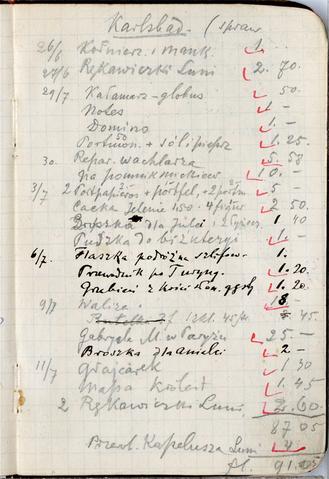 Karlsbad. (spraw
26/6 Kołnierz. i mank. 1 -
27/6 Rękawiczki Luni 2. 70.
29/7 Kałamarz-globus - 50.
Notes 1. -
Domino 1. -
Portmon. + sól i pieprz 1. 25.
30. Repar. wachlarza 5. 58
na pomnik 10. -
3/7 2 Portpapieros + portfel, + 2 5 -
Cacka Jelenie 2 50
Broszka dla Julci 1 40
Puszka do biżuterji 1. -
6/7. Flaszka podróżn. szlifow. 1.
Przewodnik po Turyng. 1. 20.
Grzebień 1. 20.
9/7 Waliza 18 -
Gabryela M. w Paryżu 25 -
Broszka dla Anielci 2 -
11/7 Grajcarek 1 30
Mapa kolei 1. 45
2 Rękawiczki Luni 2. 60.
87 05
Kapelusza Luni 4
fl. 91.05